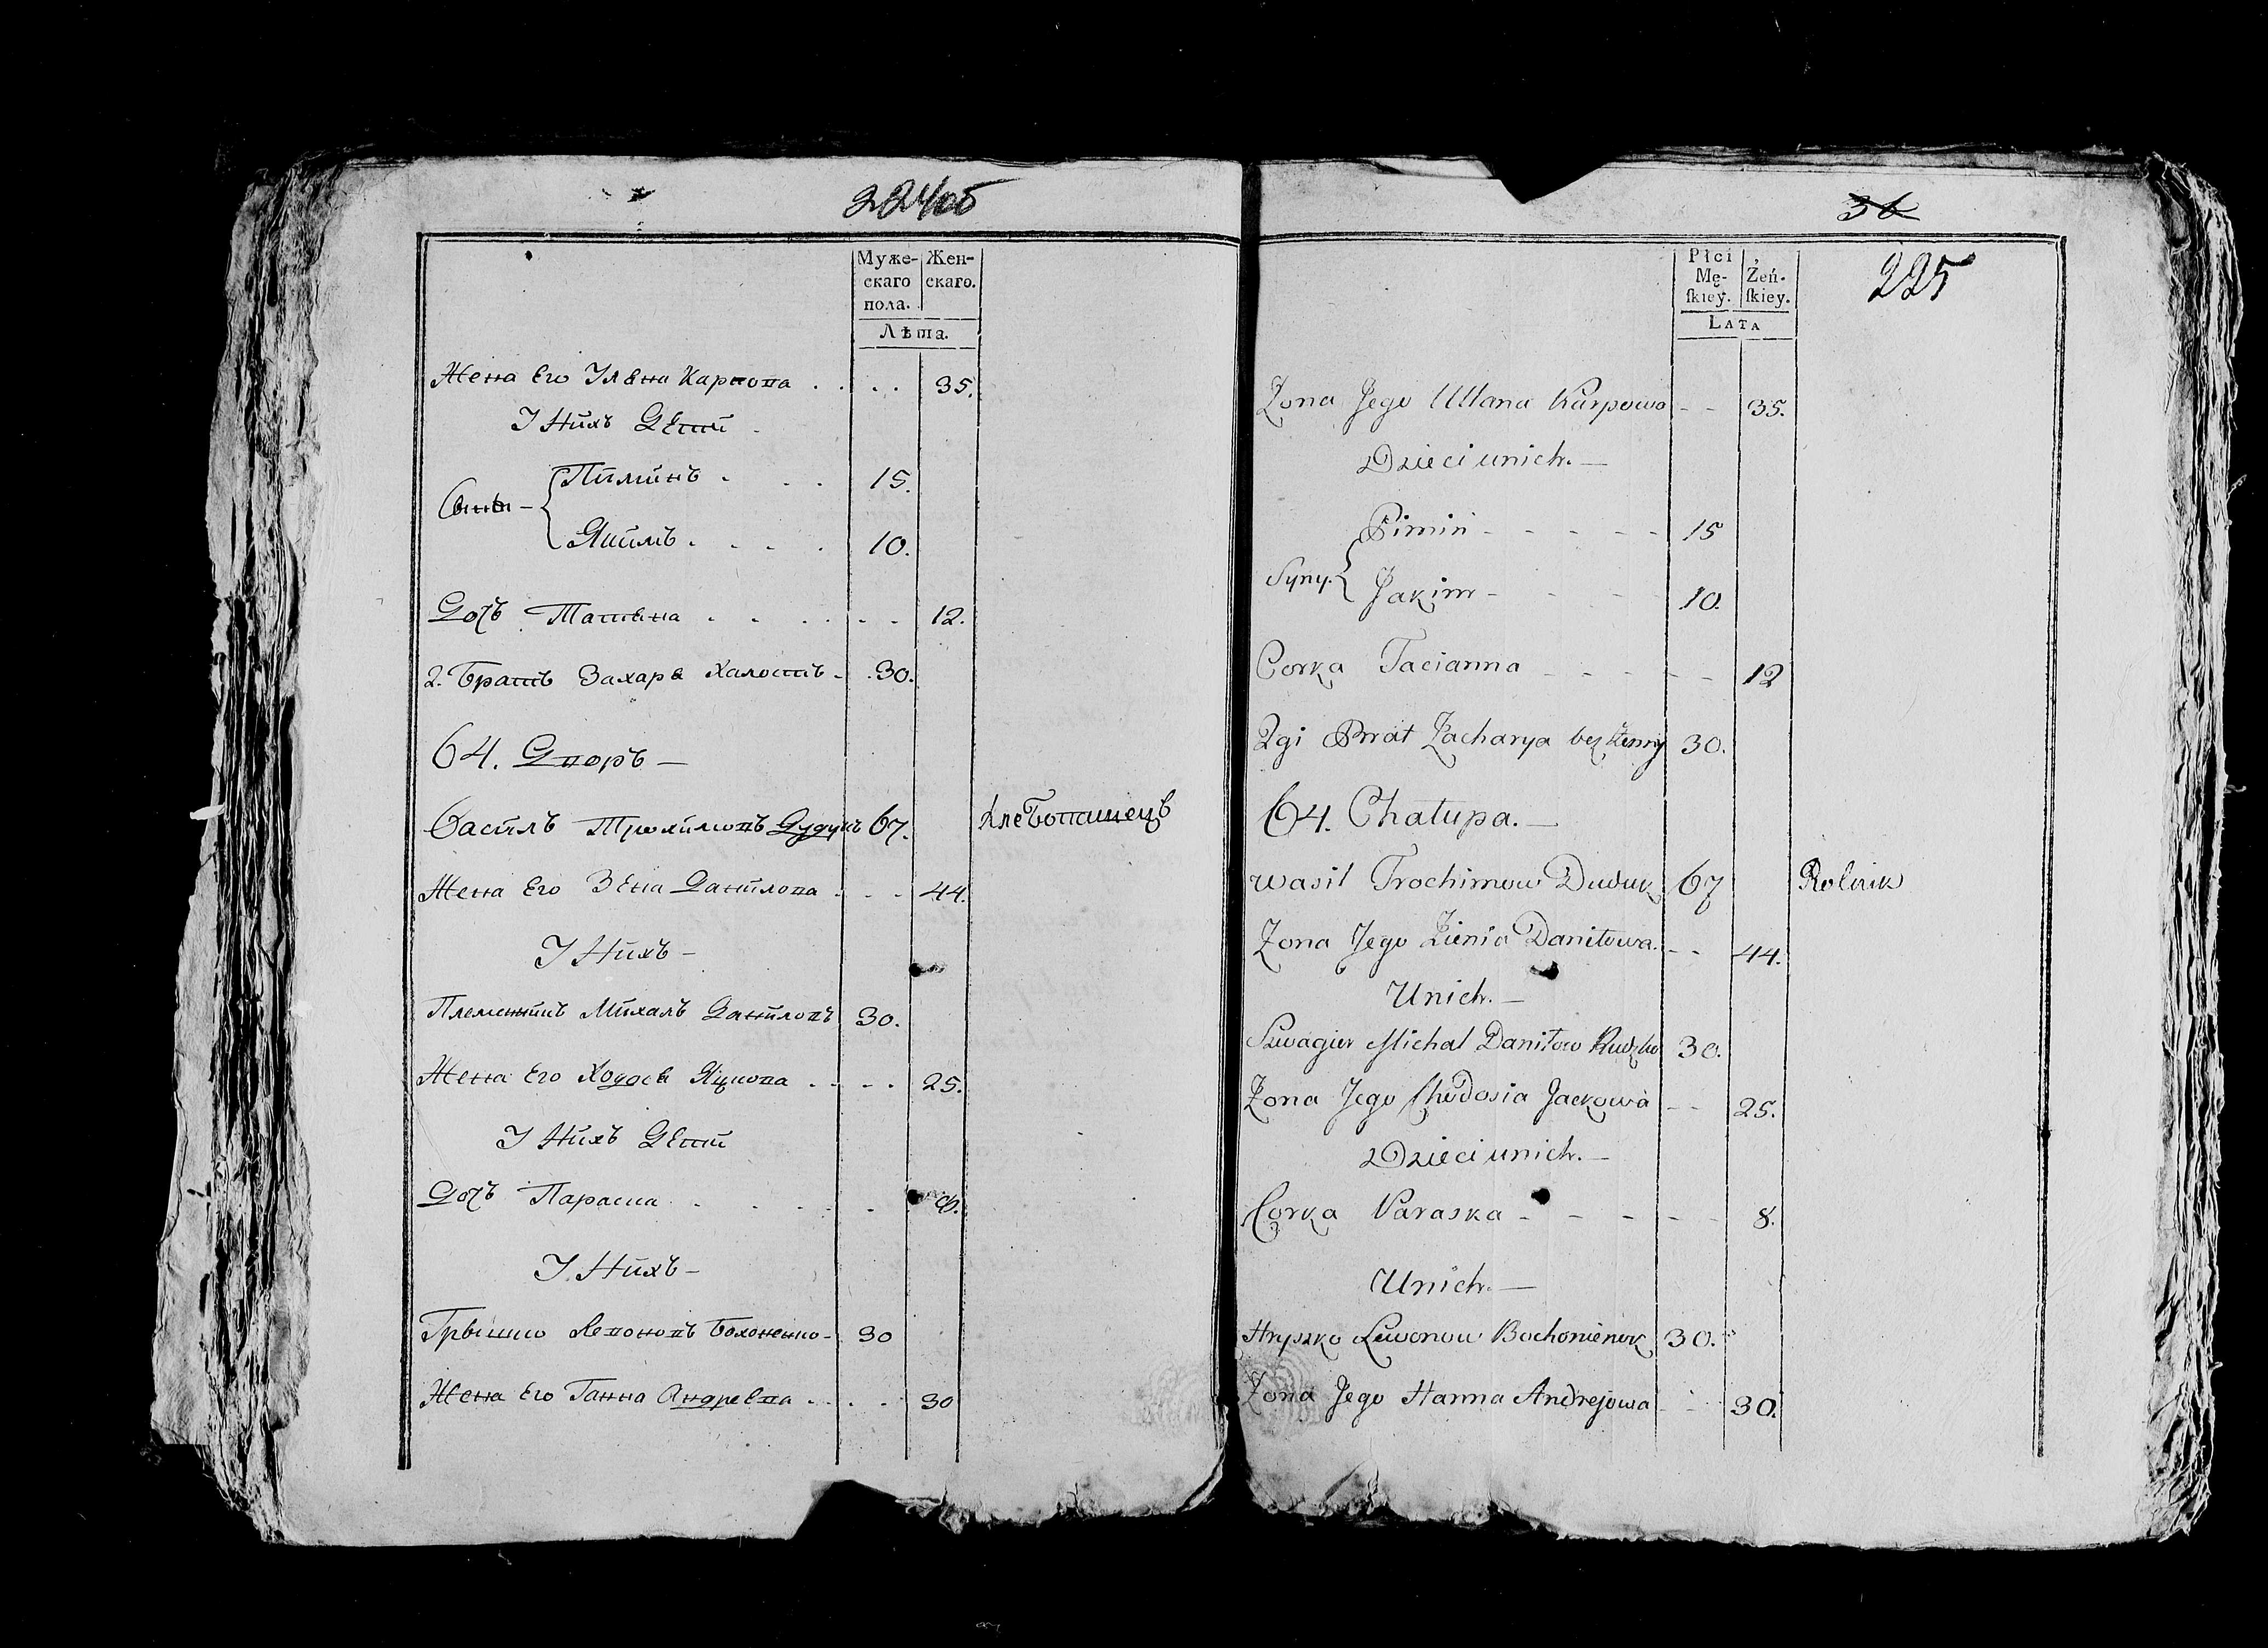 224об
Муже-
скаго
пола.
Жен-
скаго.
Лѣта.
Жена Его Улѣна Карпова 35.
У Нихъ Дети
Сыны { Пиминъ 15.
Якимъ 10.
Дочь Татьяна 12.
2. Братъ Захарѣ Халостъ 30.
64. Дворъ —
Василъ Трохимовъ Дудукъ 67. Хлебопашецъ
Жена Его Зѣна Данилова 44.
У Нихъ —
Племеникъ Михалъ Даниловъ 30.
Жена Его Ходося Яцкова 25.
У Нихъ Дети
Дочь Параска 8.
У Нихъ —
Грышко Левоновъ Бохоненко 30
Жена Его Ганна Андрѣева 30
36
225
Płci
Mę-
ſkiey.
Żeń-
ſkiey.
Lata
Zona Jego Ullana Karpowa 35.
Dzieci unich. —
Syny. { Pimin 15
Jakim 10.
Corka Tacianna 12
2gi Brat Zacharya bez Zenny 30.
64. Chatupa. —
Wasil Trochimow Duduk 67 Rolnik
Zona Jego Zienia Daniłowa 44.
Unich. —
Szwagier Michal Daniłow 30.
Zona Jego Chodosia Jackowa 25.
Dzieci unich. —
Corka Paraska 8.
Unich. —
Hryszko Lewonow Bochonienok 30.
Zona Jego Hanna Andrejowa 30.